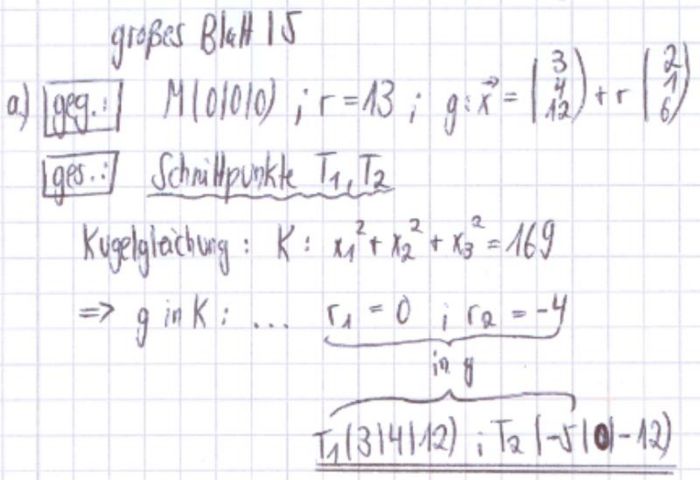 großes Blatt 15
a.) geg.: M(0|0|0) ; r = 13 ; g: x⃗ = (3 4 12) + r (2 1 6)
ges.: Schnittpunkte T₁, T₂
Kugelgleichung: K: x₁² + x₂² + x₃² = 169
=> g in K: ... r₁ = 0 ; r₂ = -4
in g
T₁(3|4|12) ; T₂(-5|0|-12)